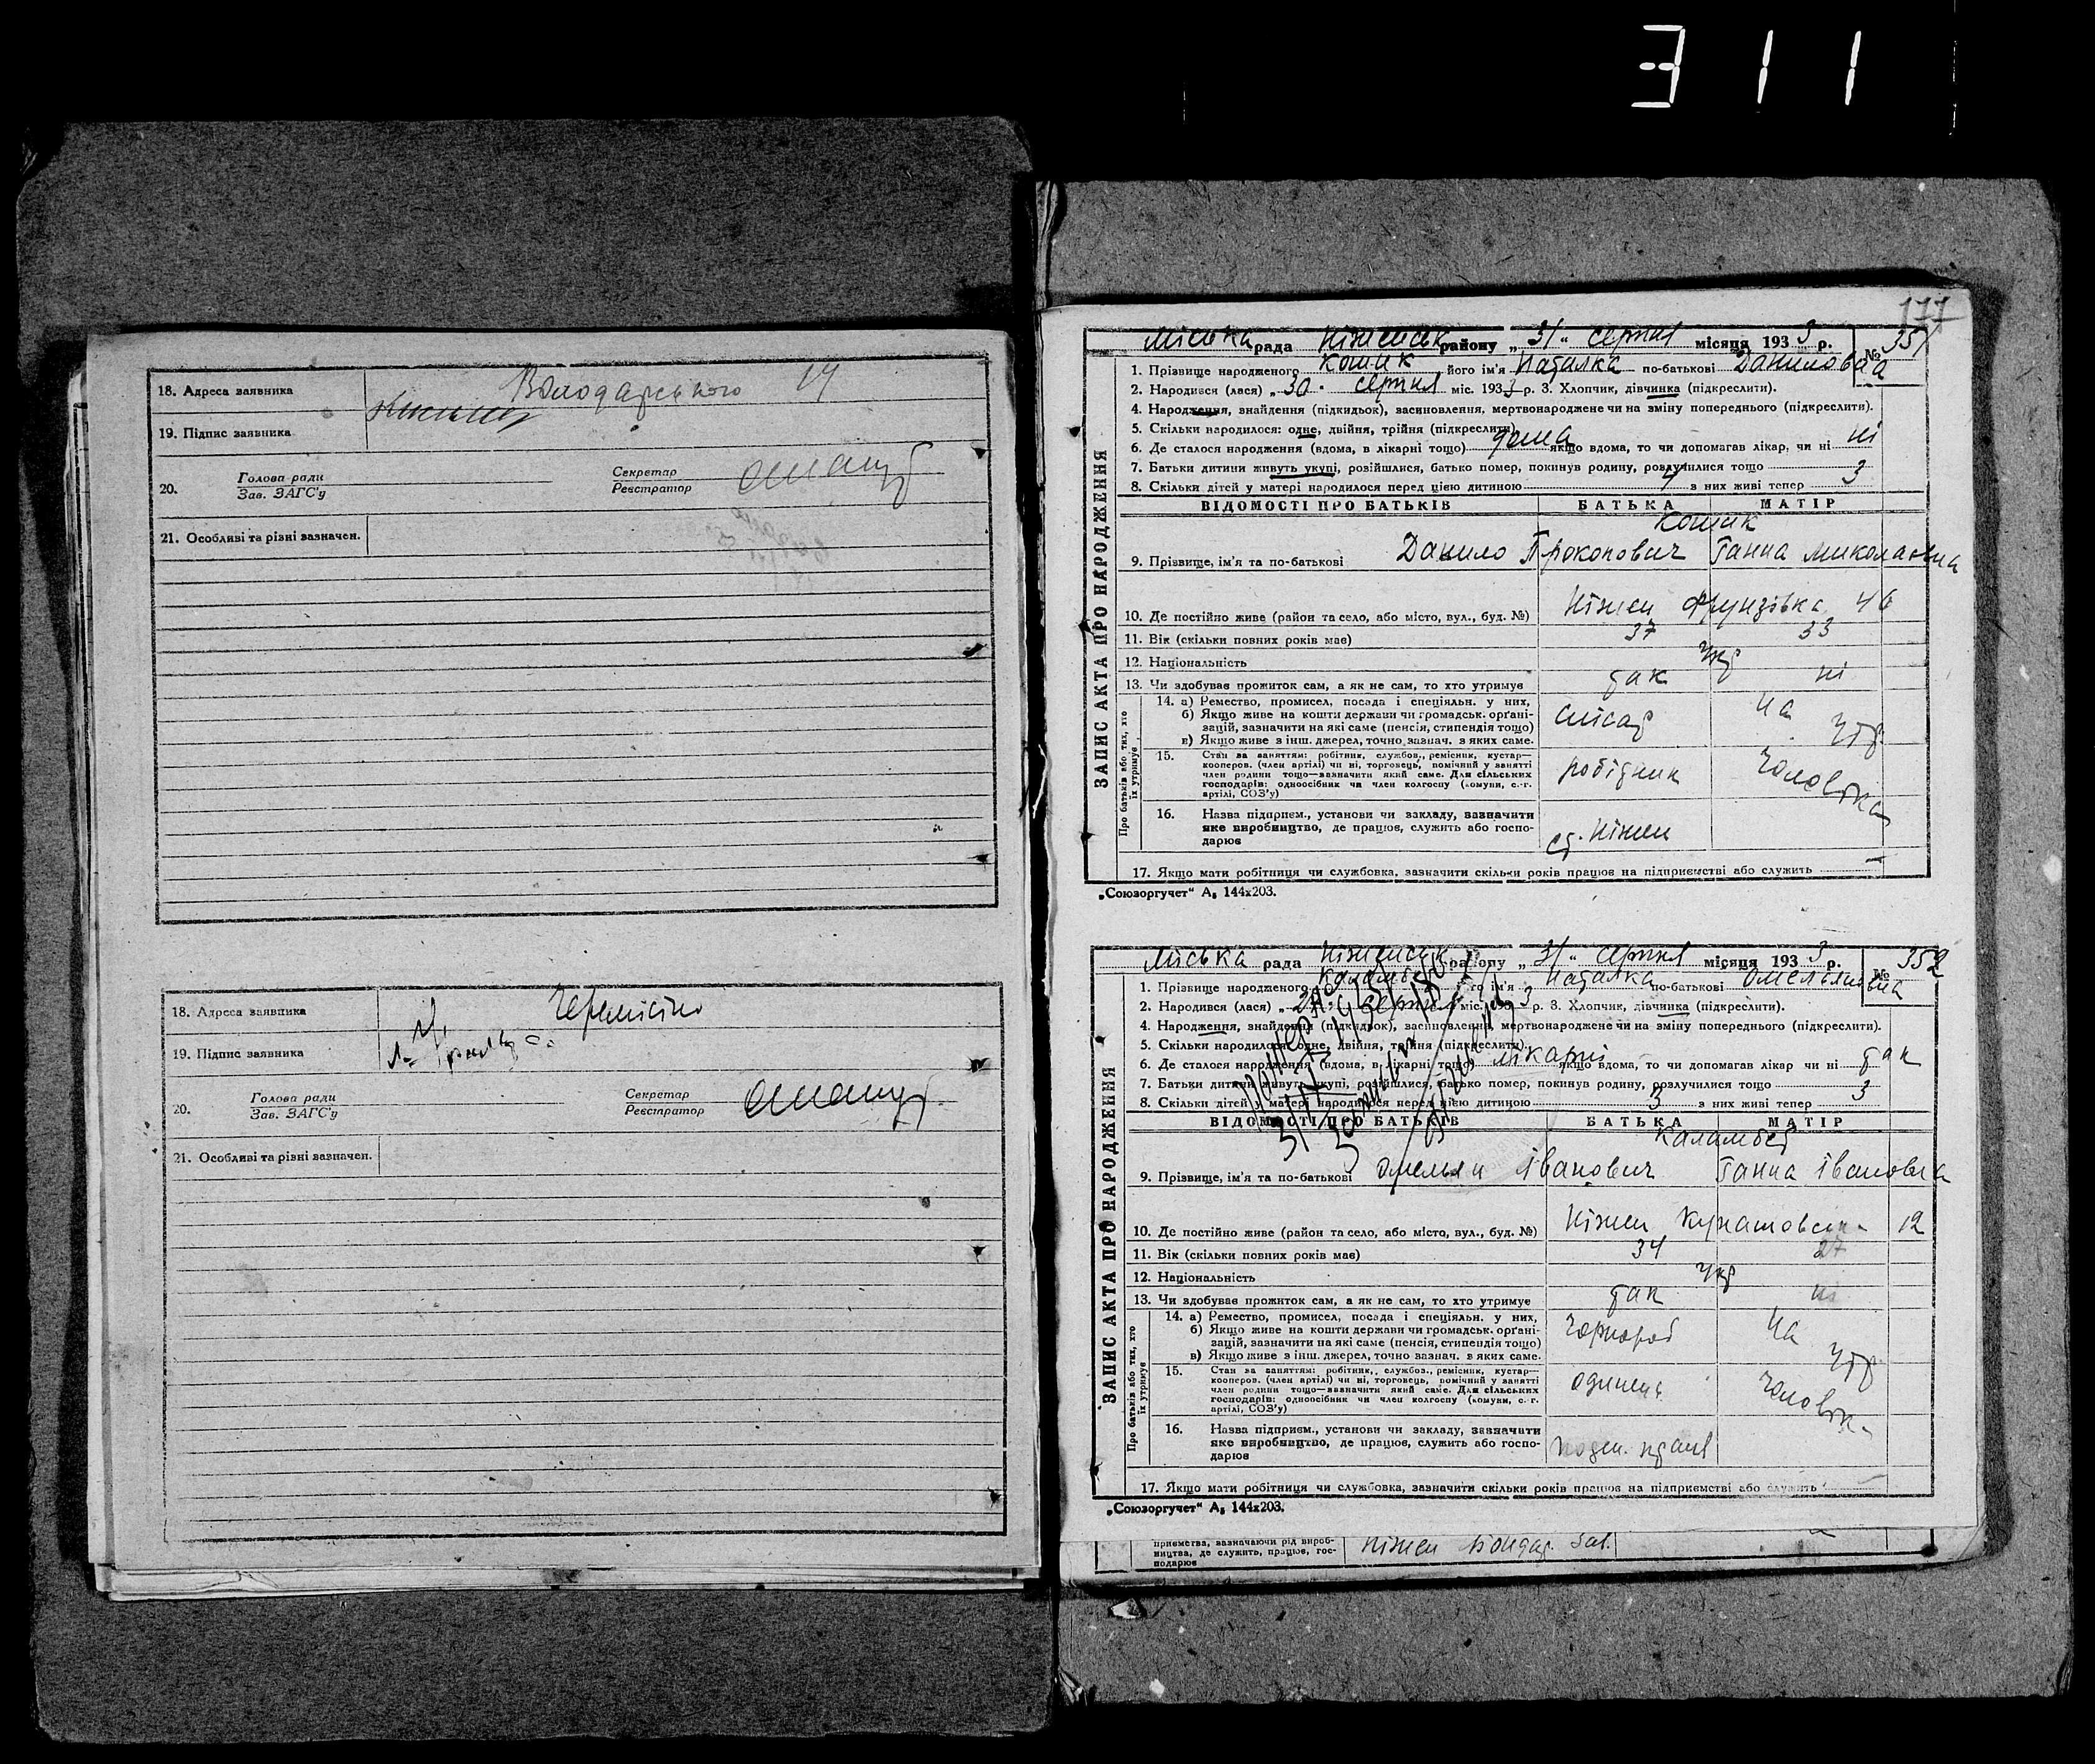 311
18. Адреса заявника Володарського 14
19. Підпис заявника
20. Голова ради
Зав. ЗАГС'у
Секретар
Реєстратор
21. Особливі та різні зазначен.
18. Адреса заявника
19. Підпис заявника
20. Голова ради
Зав. ЗАГС'у
Секретар
Реєстратор
21. Особливі та різні зазначен.
177
ЗАПИС АКТА ПРО НАРОДЖЕННЯ
Міська рада Ніженськ району „31“ серпня місяця 1933 р. № 351
1. Прізвище народженого Кошик його ім'я Наталка по-батькові Даниловна
2. Народився (лася) „30“ серпня міс. 1933 р. 3. Хлопчик, дівчинка (підкреслити).
4. Народження, знайдення (підкидьок), засиновлення, мертвонароджене чи на зміну попереднього (підкреслити).
5. Скільки народилося: одне, двійня, трійня (підкреслити)
6. Де сталося народження (вдома, в лікарні тощо) дома якщо вдома, то чи допомагав лікар, чи ні ні
7. Батьки дитини живуть укупі, розійшлися, батько помер, покинув родину, розлучилися тощо
8. Скільки дітей у матері народилося перед цією дитиною 4 з них живі тепер 3
ВІДОМОСТІ ПРО БАТЬКІВ БАТЬКА МАТІР
Кошик
9. Прізвище, ім'я та по-батькові Данило Прокопович Ганна Миколаовна
10. Де постійно живе (район та село, або місто, вул., буд. №) Ніжен Фрунзівка 46
11. Вік (скільки повних років має) 37 33
12. Національність Укр
13. Чи здобуває прожиток сам, а як не сам, то хто утримує так ні
Про батьків або тих, хто їх утримує
14. а) Ремество, промисел, посада і спеціяльн. у них,
б) Якщо живе на кошти держави чи громадськ. орґані-
зацій, зазначити на які саме (пенсія, стипендія тощо)
в) Якщо живе з інш. джерел, точно зазнач. з яких саме.
слісар на утр.
15. Стан за заняттям: робітник, службов., ремісник, кустар—
кооперов. (член артілі) чи ні, торговець, помічний у занятті
член родини тощо—зазначити який саме. Для сільських
господарів: одноосібник чи член колгоспу (комуни, с.-г.
артілі, СОЗ'у)
робітник чоловіка
16. Назва підприєм., установи чи закладу, зазначити
яке виробництво, де працює, служить або госпо-
дарює
ст. Ніжен
17. Якщо мати робітниця чи службовка, зазначити скільки років працює на підприємстві або служить —
„Союзоргучет“ А₅ 144х203.
ЗАПИС АКТА ПРО НАРОДЖЕННЯ
Міська рада Ніженськ району „31“ серпня місяця 1933 р. № 352
1. Прізвище народженого Каламбет його ім'я Наталка по-батькові Омельяновна
2. Народився (лася) серпня міс. 1933 р. 3. Хлопчик, дівчинка (підкреслити).
4. Народження, знайдення (підкидьок), засиновлення, мертвонароджене чи на зміну попереднього (підкреслити).
5. Скільки народилося: одне, двійня, трійня (підкреслити)
6. Де сталося народження (вдома, в лікарні тощо) лікарні якщо вдома, то чи допомагав лікар чи ні так
7. Батьки дитини живуть укупі, розійшлися, батько помер, покинув родину, розлучилися тощо
8. Скільки дітей у матері народилося перед цією дитиною 3 з них живі тепер 3
ВІДОМОСТІ ПРО БАТЬКІВ БАТЬКА МАТІР
Каламбет
9. Прізвище, ім'я та по-батькові Омельян Іванович Ганна Івановна
10. Де постійно живе (район та село, або місто, вул., буд. №) Ніжен 12
11. Вік (скільки повних років має) 34 27
12. Національність Укр
13. Чи здобуває прожиток сам, а як не сам, то хто утримує так ні
Про батьків або тих, хто їх утримує
14. а) Ремество, промисел, посада і спеціяльн. у них,
б) Якщо живе на кошти держави чи громадськ. орґані-
зацій, зазначити на які саме (пенсія, стипендія тощо)
в) Якщо живе з інш. джерел, точно зазнач. з яких саме.
чорнороб на утр
15. Стан за заняттям: робітник, службов., ремісник, кустар—
кооперов. (член артілі) чи ні, торговець, помічний у занятті
член родини тощо—зазначити який саме. Для сільських
господарів: одноосібник чи член колгоспу (комуни, с.-г.
артілі, СОЗ'у)
одинець
16. Назва підприєм., установи чи закладу, зазначити
яке виробництво, де працює, служить або госпо-
дарює
17. Якщо мати робітниця чи службовка, зазначити скільки років працює на підприємстві або служить
„Союзоргучет“ А₅ 144х203.
приємства, зазначаючи рід вироб-
ництва, де служить, працює, гос-
подарює
Ніжен